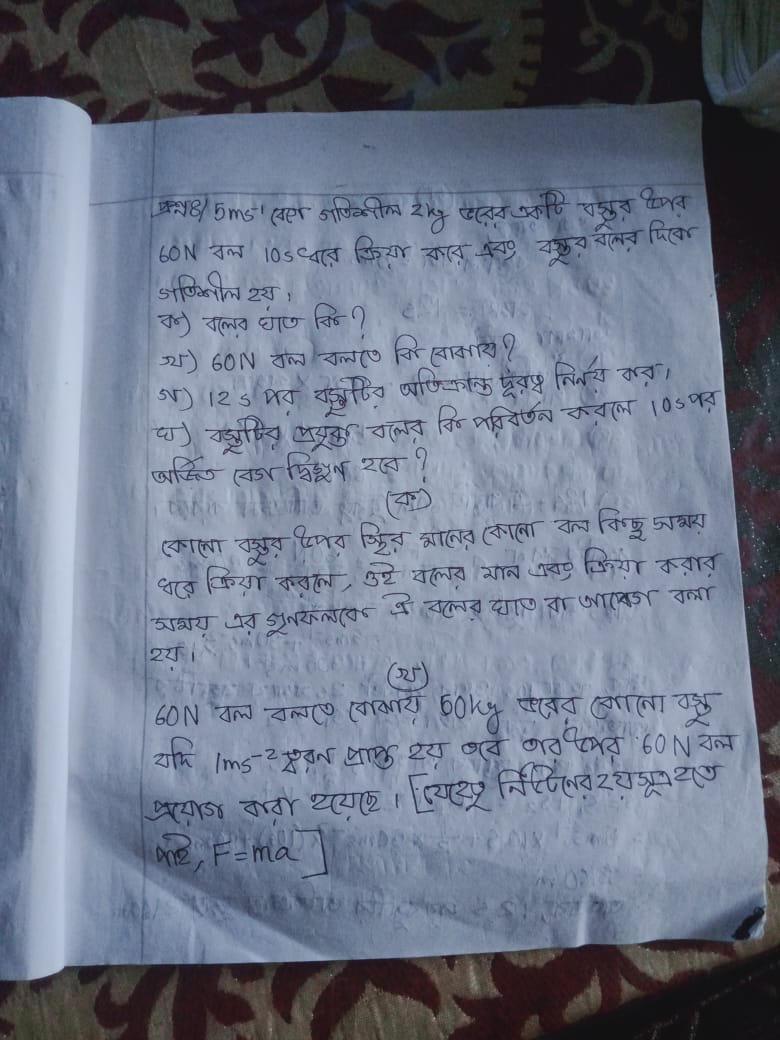 প্রশ্নঃ/ 5ms⁻¹ বেগে গতিশীল 2kg ভরের একটি বস্তুর উপর
60N বল 10s ধরে ক্রিয়া করে এবং বস্তুর বলের দিকে
গতিশীল হয়।
ক) বলের ঘাত কি?
খ) 60N বল বলতে কি বোঝায়?
গ) 12s পর বস্তুটির অতিক্রান্ত দূরত্ব নির্ণয় কর।
ঘ) বস্তুটির প্রযুক্ত বলের কি পরিবর্তন করলে 10s পর
অর্জিত বেগ দ্বিগুণ হবে?
(ক)
কোনো বস্তুর উপর স্থির মানের কোনো বল কিছু সময়
ধরে ক্রিয়া করলে, ওই বলের মান এবং ক্রিয়া করার
সময় এর গুনফলকে ঐ বলের ঘাত বা আবেগ বলা
হয়।
(খ)
60N বল বলতে বোঝায় 60kg ভরের কোনো বস্তু
যদি 1ms⁻² ত্বরন প্রাপ্ত হয় তবে তার উপর 60N বল
প্রয়োগ করা হয়েছে। [যেহেতু নিউটনের ২য় সূত্র হতে
পাই, F=ma]